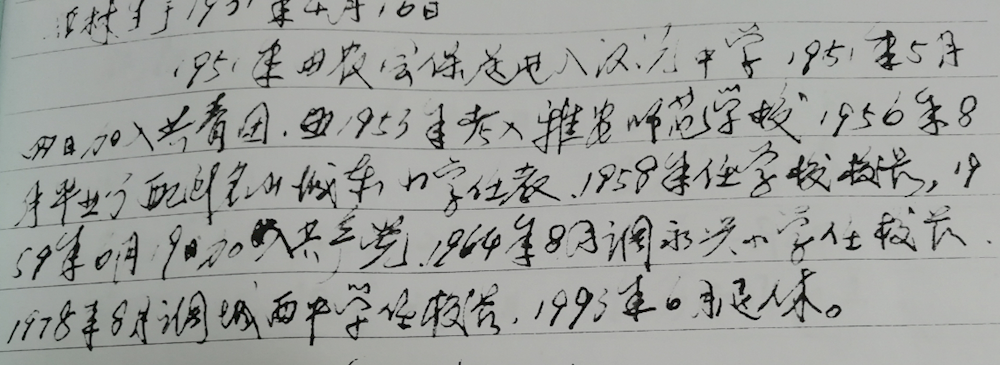 村生于1931年4月16日
1951年由农会保送进入汉源中学1951年5月
四日加入共青团.由1953年考入雅安师范学校1956年8
月毕业分配到名山城东小学任教.1958年任学校校长,19
59年月19日加入共产党.1964年8月调永兴小学任校长.
1978年8月调城西中学任校长.1993年6月退休。